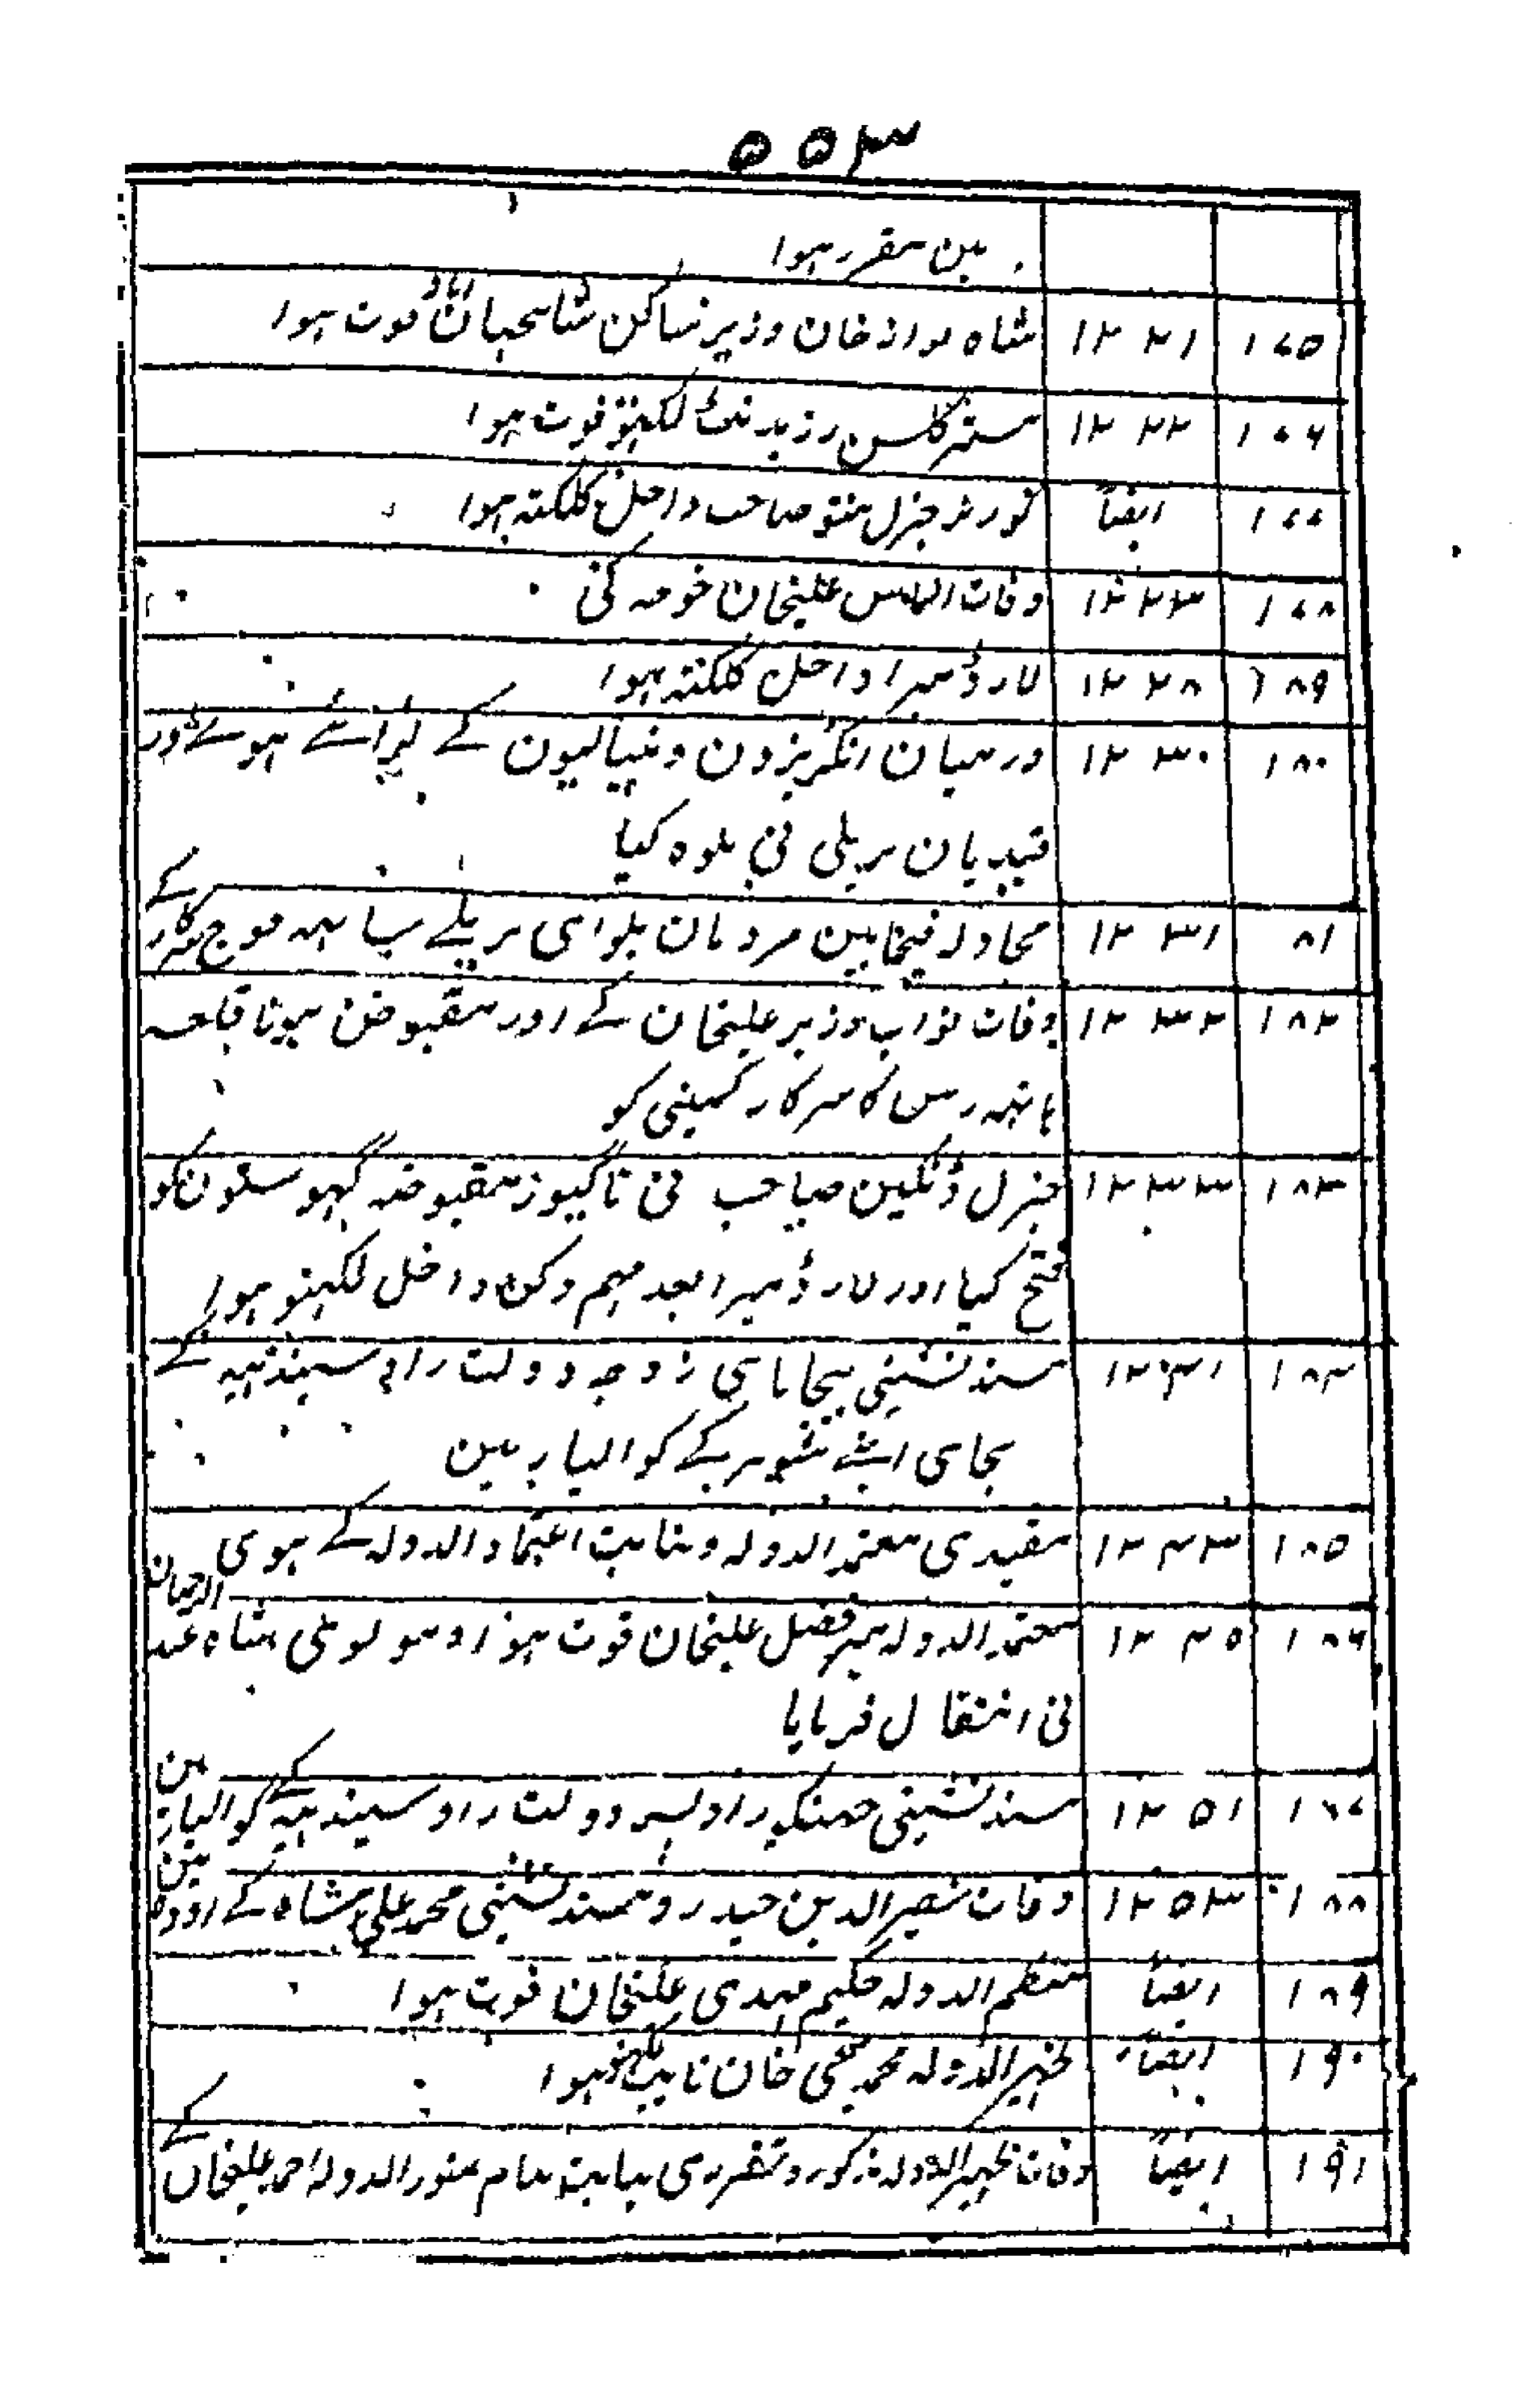 ۵۵۳
مین مقرر ہوا
۱۷۵ ۱۲۲۱ شاہ نواز خان وزیر ساکن شاہجہان اباد فوت ہوا
۱۷۶ ۱۲۲۲ مسٹر کلسن رزیدنٹ لکہنؤ فوت ہوا
۱۷۷ ایضاً گورنر جنرل منٹو صاحب داخل کلکتہ ہوا
۱۷۸ ۱۲۲۳ وفات الماس علیخان خوجہ کی
۱۸۹ ۱۲۲۸ لارڈ میرا داخل کلکتہ ہوا
۱۸۰ ۱۲۳۰ درمیان انگریزون و نیپالیون کے لڑائے ہوئے اور
قیدیان بریلی نی بلوہ کیا
۸۱ ۱۲۳۱ مجادلہ فیمابین مردمان بلوای بریلے ساتہہ فوج سرکار کے
۱۸۲ ۱۲۳۲ وفات نواب وزیر علیخان کے اور مقبوض ہونا قلعہ
ہاتہہ رس کا سرکار کمپنی کو
۱۸۳ ۱۲۳۳ جنرل ڈنکین صاحب نی ناگپور مقبوضہ گہوسلون کو
فتح کیا اور لارڈ میرا بعد مہم دکن داخل لکہنو ہوا
۱۸۴ ۱۲۴۱ مسند نشینی بیجابای زوجہ دولت راو سیندہیہ کے
بجای اپنے شوہر کے گوالیار مین
۱۸۵ ۱۲۴۳ مقیدی معتمد الدولہ و نیابت اعتماد الدولہ کے ہوی
۱۸۶ ۱۲۴۵ معتمد الدولہ میر فضل علیخان فوت ہوا و مولوی شاہ عبد الرحمان
نی انتقال فرمایا
۱۶۷ ۱۲۵۱ مسند نشینی جہنکو راو پسر دولت راو سیندہیہ کے گوالیار مین
۱۸۸ ۱۲۵۳ وفات نصیر الدین حیدر و مسند نشینی محمد علی شاہ کے اودہ مین
۱۸۹ ایضاً منتظم الدولہ حکیم مہدی علیخان فوت ہوا
۱۹۰ ایضاً ظہیر الدولہ محمد تقی خان نایب ہوا
۱۹۱ ایضاً وفات ظہیر الدولہ مذکور و تقرری نیابت بنام منور الدولہ احمد علیخاں کے